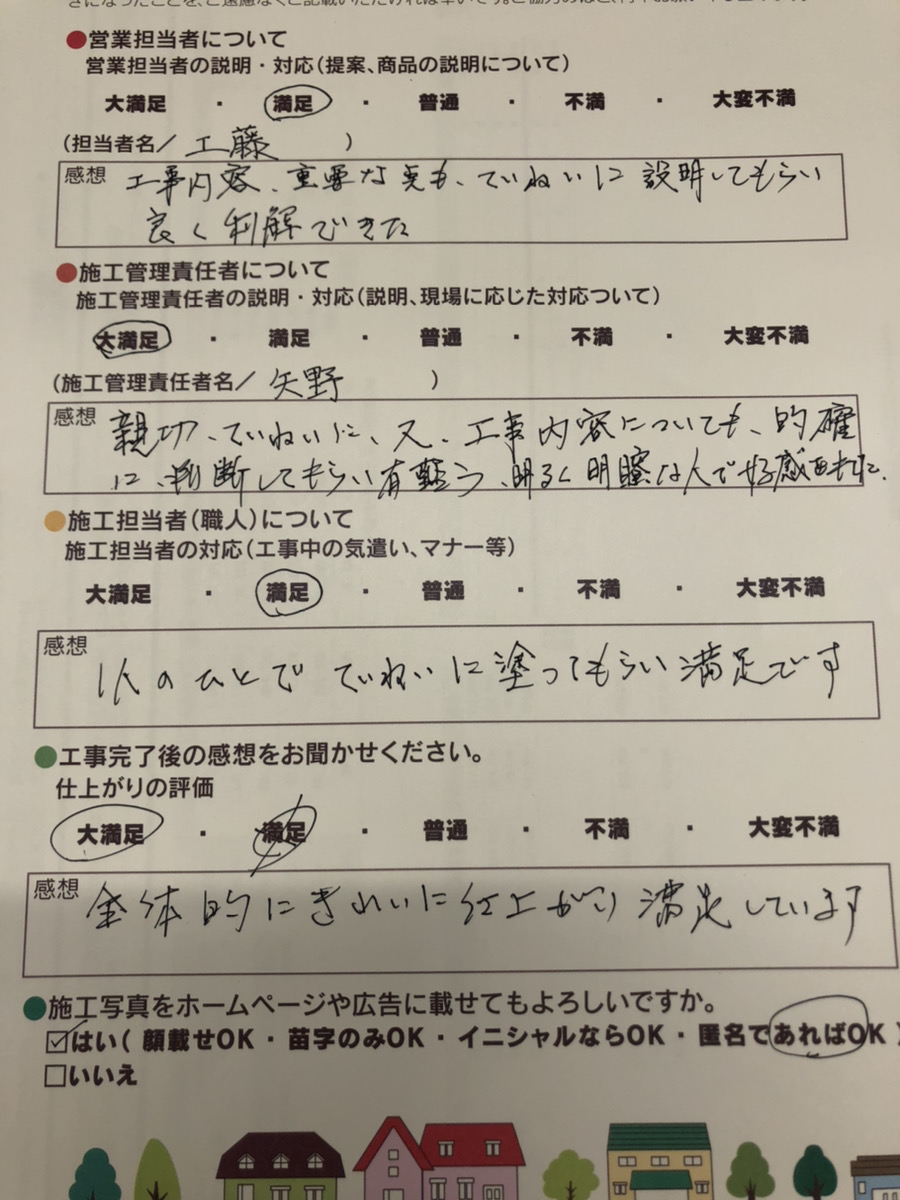 ●営業担当者について
営業担当者の説明・対応(提案、商品の説明について)
大満足 ・ 満足 ・ 普通 ・ 不満 ・ 大変不満
(担当者名／ 工藤 )
感想 工事内容、重要な点も、ていねいに説明してもらい
良く利解できた
●施工管理責任者について
施工管理責任者の説明・対応(説明、現場に応じた対応ついて)
大満足 ・ 満足 ・ 普通 ・ 不満 ・ 大変不満
(施工管理責任者名／ 矢野 )
感想 親切、ていねいに、又、工事内容についても、的確
に、判断してもらい有難う、明るく明瞭な人で好感をもてた.
●施工担当者(職人)について
施工担当者の対応(工事中の気遣い、マナー等)
大満足 ・ 満足 ・ 普通 ・ 不満 ・ 大変不満
感想 1人のひとでていねいに塗ってもらい満足です
●工事完了後の感想をお聞かせください。
仕上がりの評価
大満足 ・ 満足 ・ 普通 ・ 不満 ・ 大変不満
感想 全体的にきれいに仕上がり満足しています
●施工写真をホームページや広告に載せてもよろしいですか。
☑はい( 顔載せOK ・ 苗字のみOK ・ イニシャルならOK ・ 匿名であればOK )
□いいえ